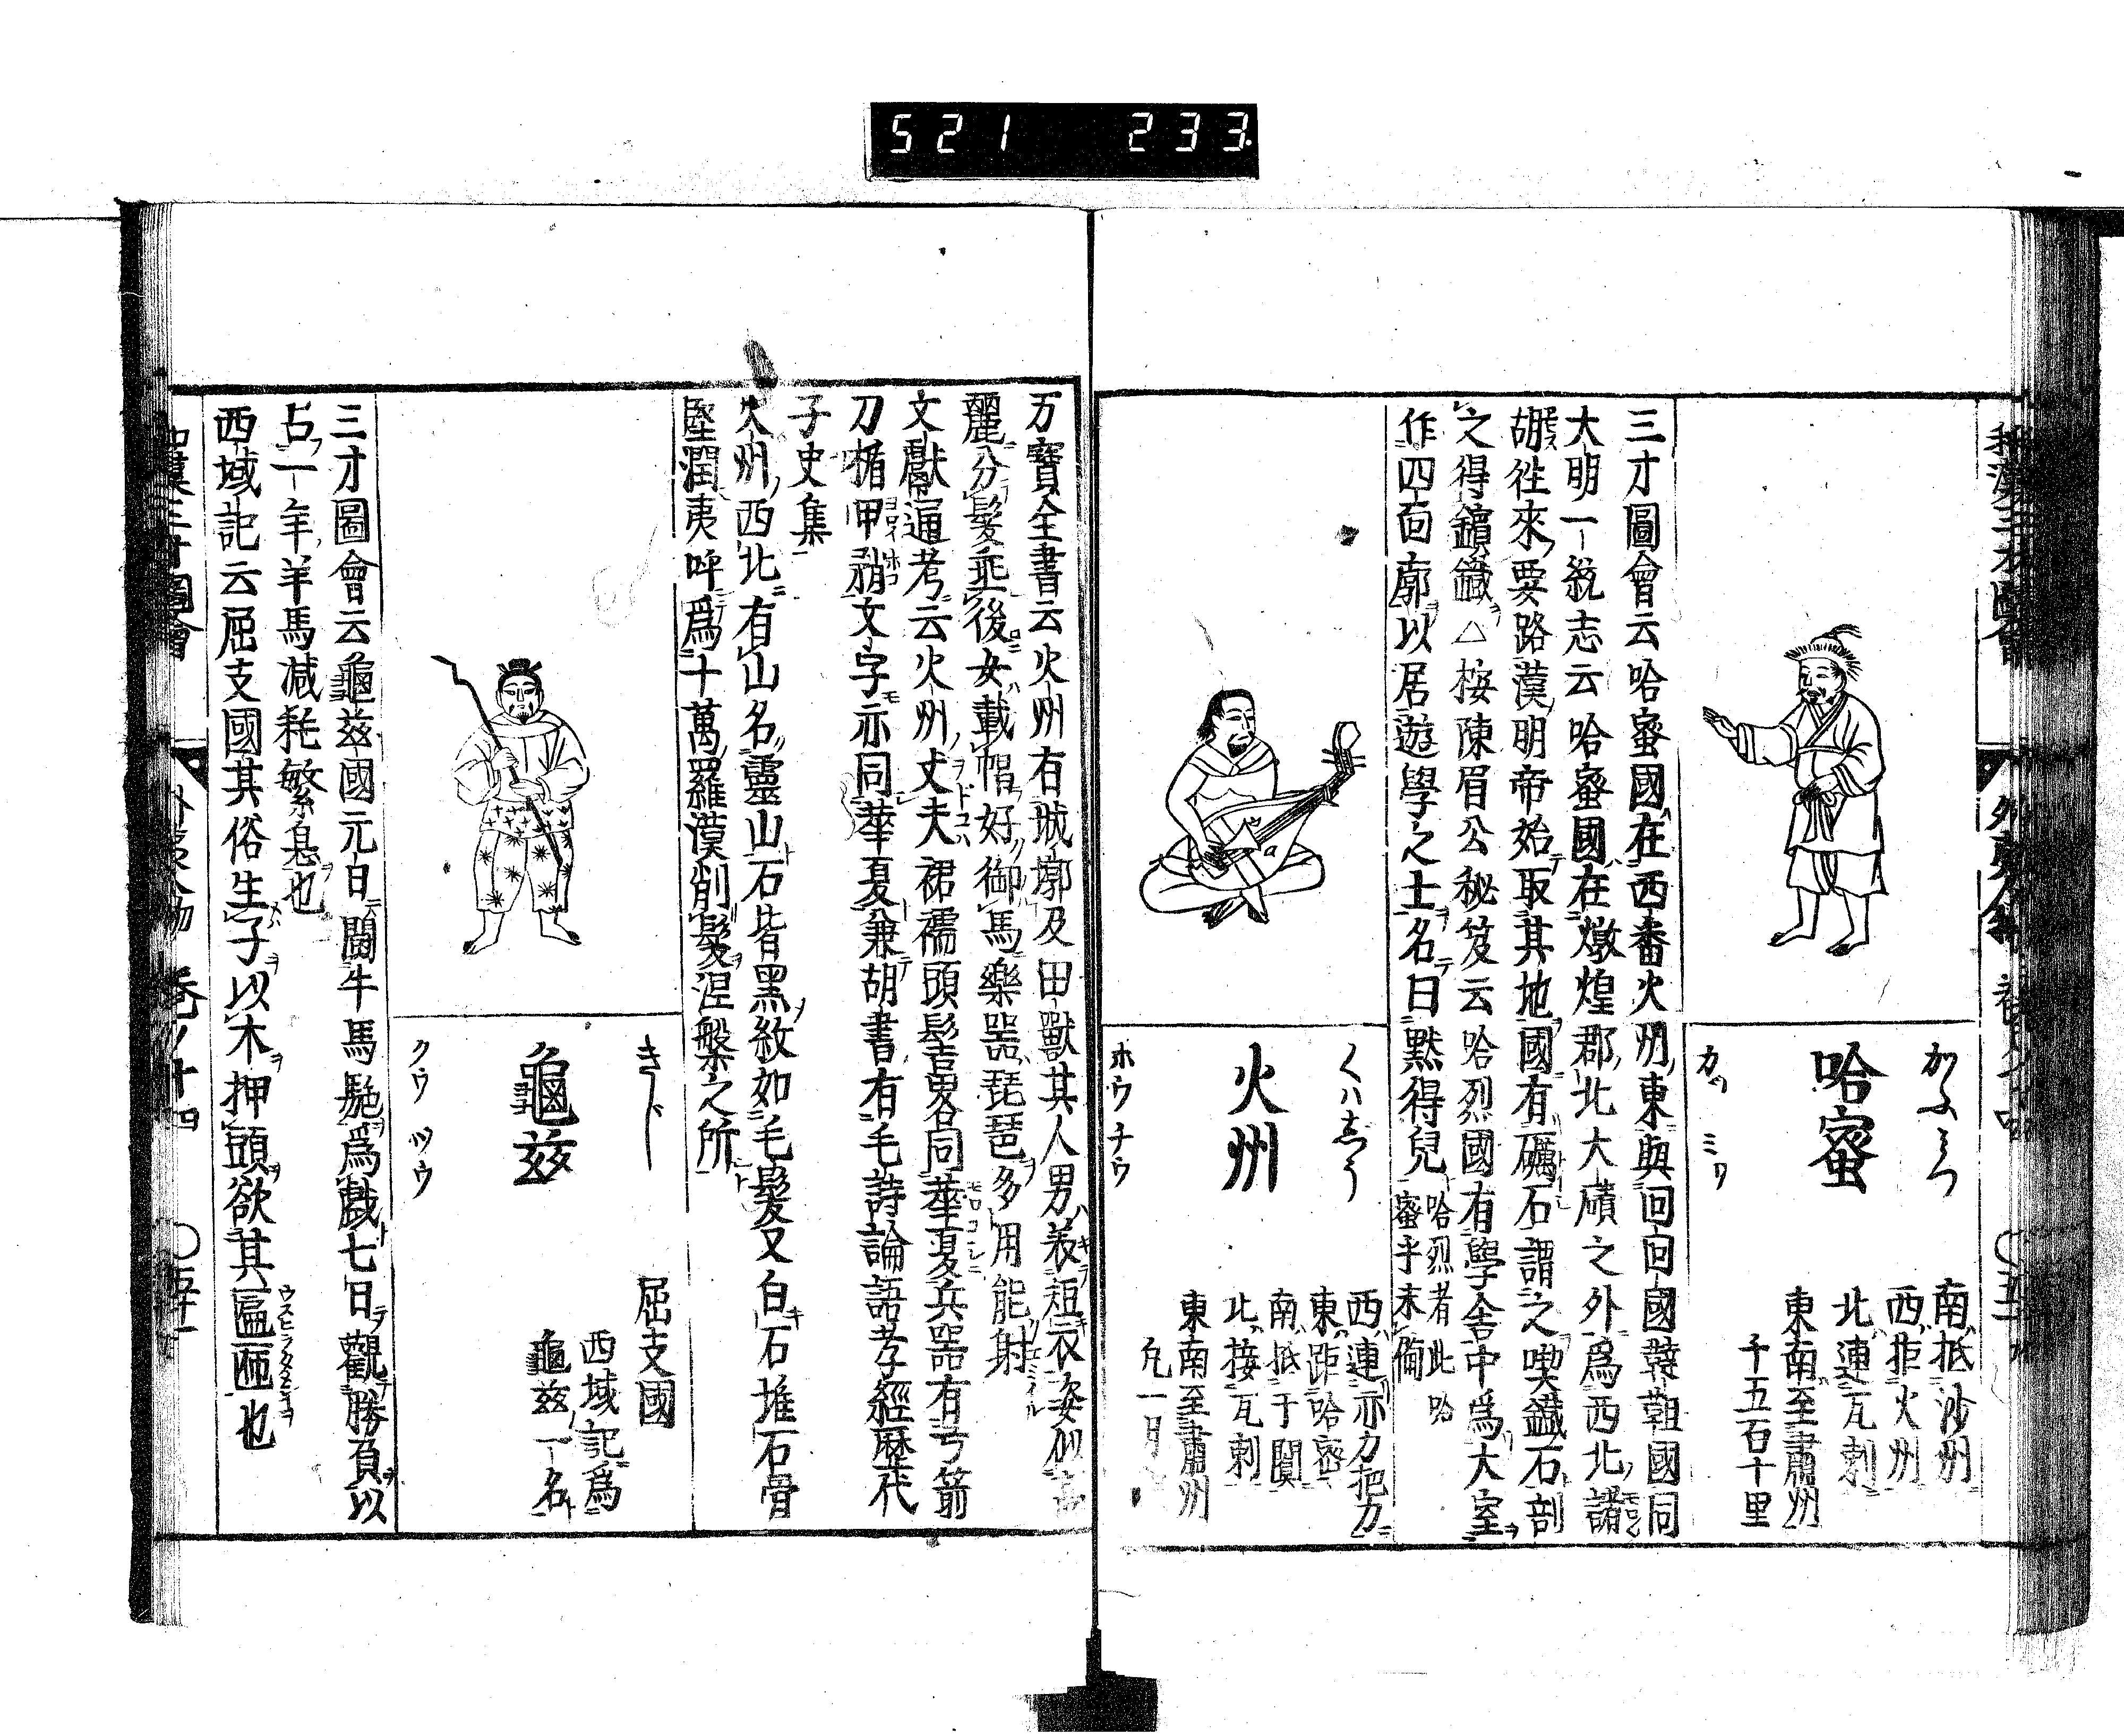 521 233
和漢三才圖會
かふみつ
哈蜜
カツ ミツ
南抵沙州
西拒火州
北連瓦剌
東南至肅州
千五百十里
三才圖會云哈蜜國在西番火州東與回回國韃靼國同
大明一統志云哈蜜國在燉煌郡北大磧之外爲西北諸
胡徃來要路漢明帝始取其地國有礪石謂之喫鐵石剖
之得鑌鐵△按陳眉公秘笈云哈烈國有學舎中爲大室
作四面廓以居遊學之士名曰黙得兒哈烈者此哈
蜜乎未備
くハしう
火州
ホウ チウ
西連亦力把力
東距哈密
南抵于闐
北接瓦剌
東南至肅州
凢一月
万寳全書云火州有城郭及田獸其人男表短衣姿似高
麗分髮垂後女戴帽好御馬樂噐琵琶多用能射
文獻通考云火州丈夫裙襦頭髻畧同華夏兵噐有弓箭
刀楯甲矟文字亦同華夏兼胡書有毛詩論語孝經歴代
子史集
火州西北有山名靈山石皆黑紋如毛髮又白石堆石骨
堅潤夷呼爲十萬羅漢削髮涅槃之所
きじ
龜茲
クウ ツウ
屈支國
西域記爲
龜茲一名
三才圖會云龜茲國元日鬪牛馬駞爲戯七日觀勝負以
占一年羊馬减耗繁息也
西域記云屈支國其俗生子以木押頭欲其匾㔸也
和漢三才圖會 外夷人物 卷ノ十四 〇五十一